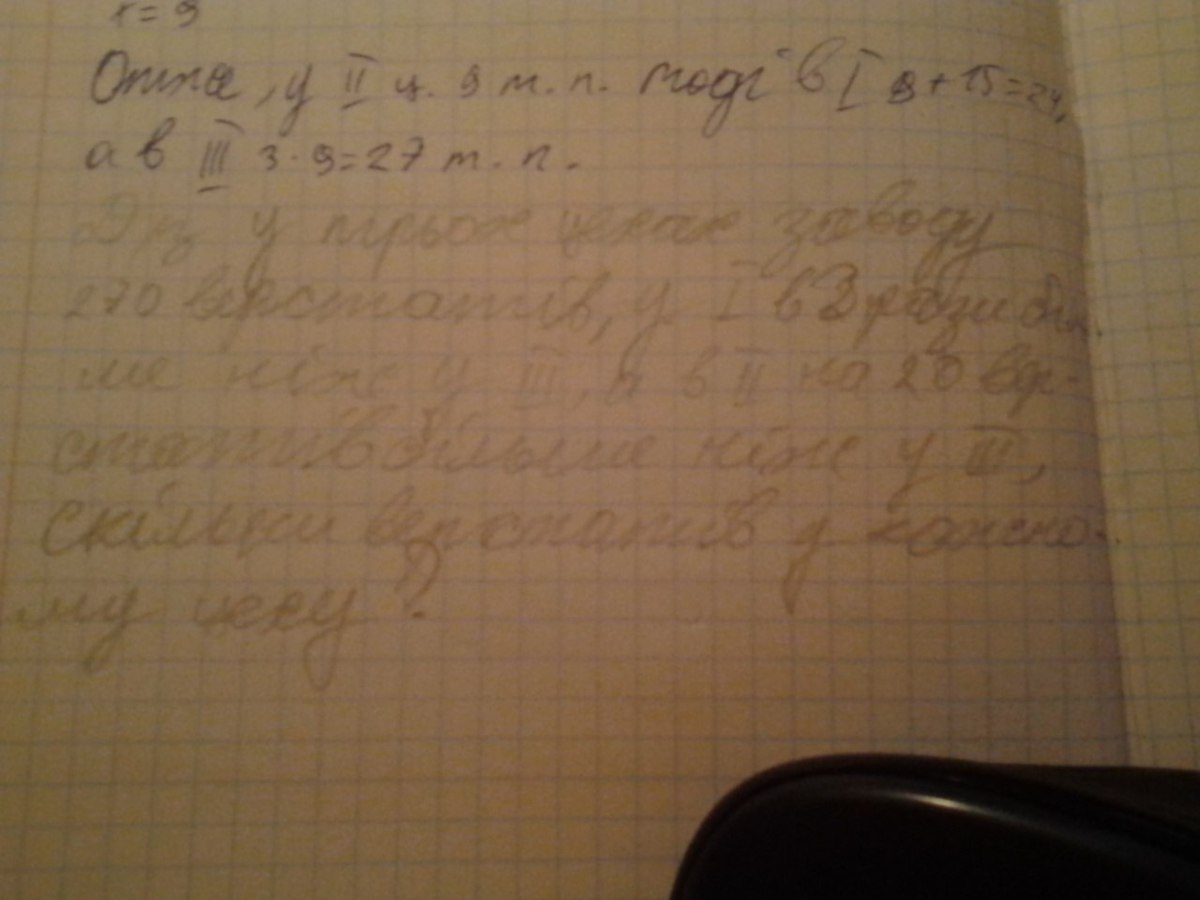 x = 9
Отже, у II ц. 9 т. п. тоді в I 9 + 15 = 24,
а в III 3 · 9 = 27 т. п.
Дз У трьох цехах заводу
270 верстатів, у I в 3 рази біль
ше ніж у III, а в II на 20 вер-
статів більше ніж у III,
скільки верстатів у кожно-
му цеху?